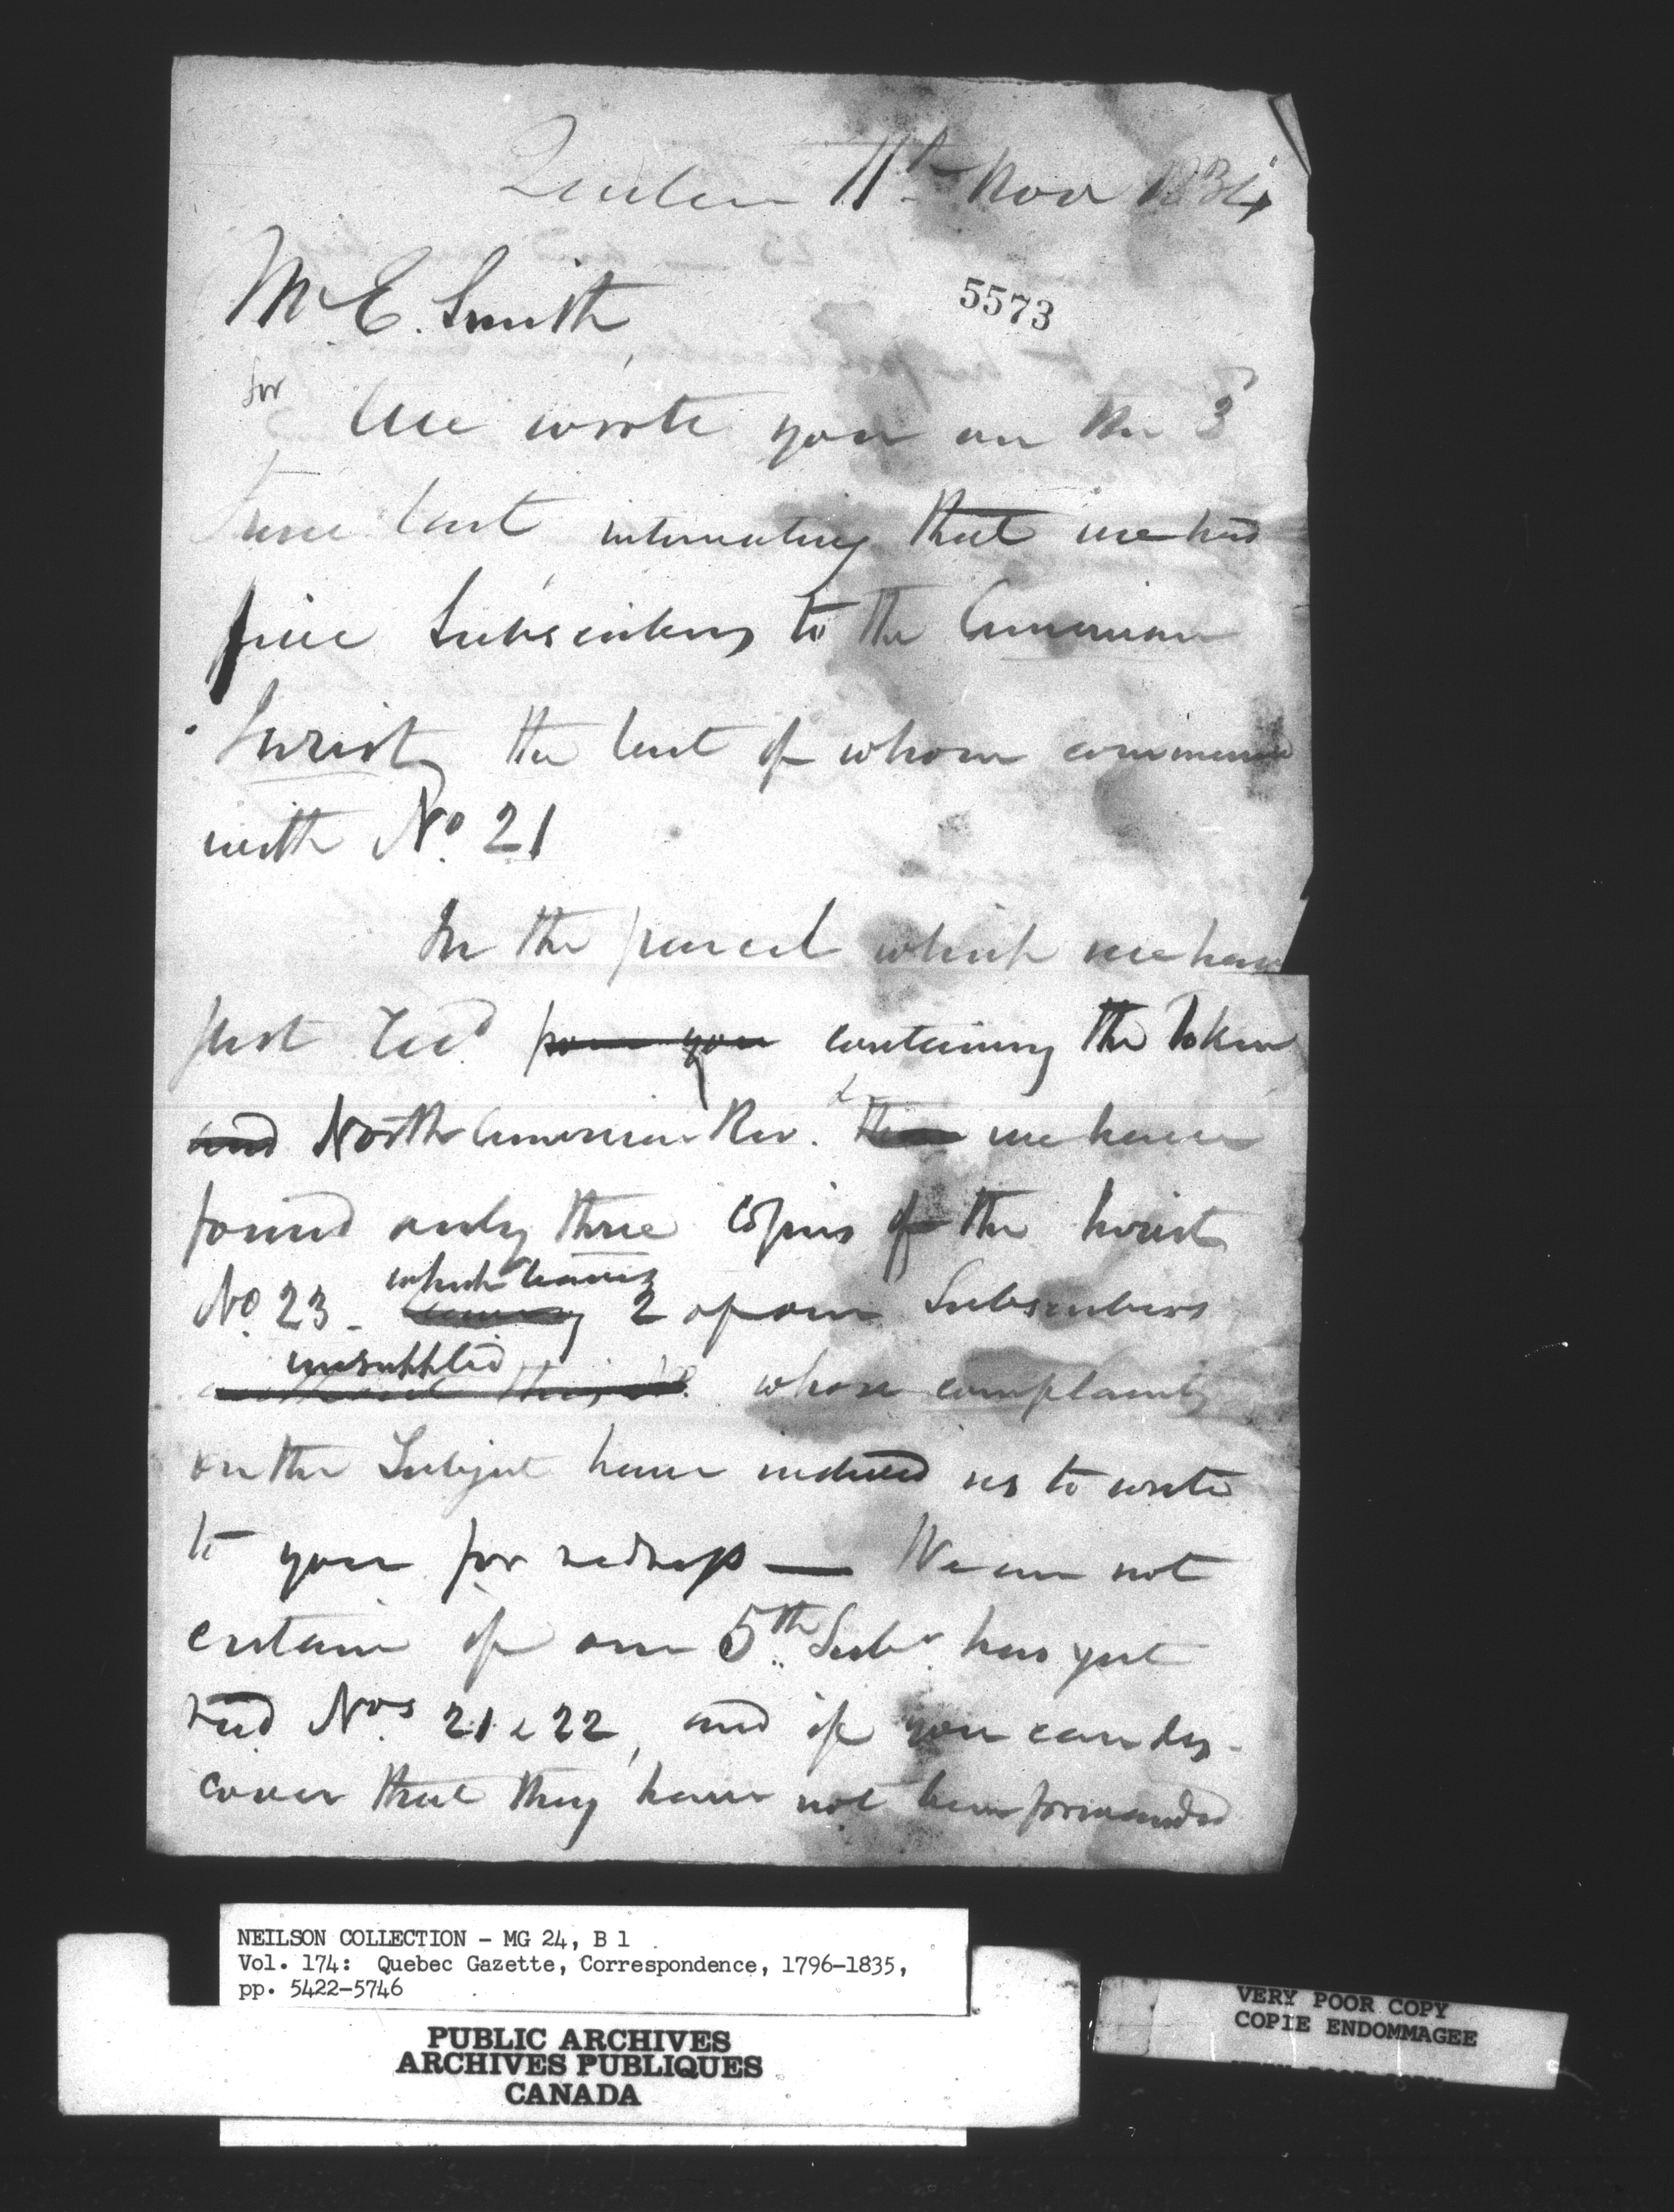 Quebec 11th Nov 1834
Mr E. Smith,
5573
Sir
We wrote you on the 3d
June last intimating that we had
five Subscribers to the American
Jurist, the last of whom commence
with No. 21
In the parcel which we have
just recd from you containing the Token
and North American Rev. & then we have
found only three Copies of the Jurist
No. 23 - which leaves
leaving 2 of our Subscribers
unsupplied
without this No. whose complaints
on the Subject have induced us to write
to you for redress — We are not
certain if our 5th Subr. has yet
recd Nos. 21 & 22, and if you can dis-
cover that they have not been forwarded
NEILSON COLLECTION - MG 24, B 1
Vol. 174: Quebec Gazette, Correspondence, 1796-1835,
pp. 5422-5746
PUBLIC ARCHIVES
ARCHIVES PUBLIQUES
CANADA
VERY POOR COPY
COPIE ENDOMMAGEE